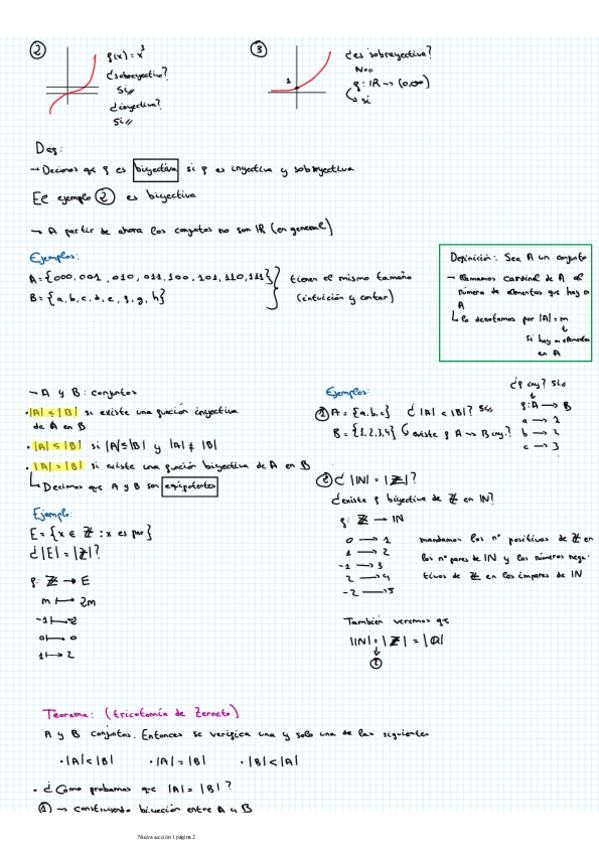 ②
f(x) = x³
¿sobreyectiva?
Si
¿inyectiva?
Si
③
1
¿es sobreyectiva?
No
f: IR → (0,∞)
si
Def:
→ Decimos que f es biyectiva si f es inyectiva y sobreyectiva
El ejemplo ② es biyectiva
→ A partir de ahora los conjuntos no son IR (en general)
Ejemplos:
A = {000, 001, 010, 011, 100, 101, 110, 111}
B = {a, b, c, d, e, f, g, h}
tienen el mismo tamaño
(intuición y contar)
Definición: Sea A un conjunto
→ llamamos cardinal de A al
número de elementos que hay en
A
lo denotamos por |A| = m
si hay m elementos
en A
→ A y B: conjuntos
• |A| ≤ |B| si existe una función inyectiva
de A en B
• |A| < |B| si |A| ≤ |B| y |A| ≠ |B|
• |A| = |B| si existe una función biyectiva de A en B
Decimos que A y B son equipotentes
Ejemplo:
E = {x ∈ Z : x es par}
¿|E| = |Z|?
f: Z → E
m ↦ 2m
-1 ↦ -2
0 ↦ 0
1 ↦ 2
Ejemplos:
① A = {a,b,c} ¿|A| < |B|? Si
B = {1,2,3,4} existe f A → B iny?
¿f iny? Si
f: A → B
a → 1
b → 2
c → 3
② ¿|IN| = |Z|?
¿existe f biyectiva de Z en IN?
f: Z → IN
0 → 1
1 → 2
-1 → 3
2 → 4
-2 → 5
mandamos los nº positivos de Z en
los nº pares de IN y los números nega-
tivos de Z en los impares de IN
También veremos que
|IN| = |Z| = |Q|
②
Teorema: (tricotomía de Zermelo)
A y B conjuntos. Entonces se verifica una y solo una de las siguientes
• |A| < |B| • |A| = |B| • |B| < |A|
• ¿Cómo probamos que |A| = |B|?
① → construyendo biyección entre A y B
Nueva sección 1 página 2